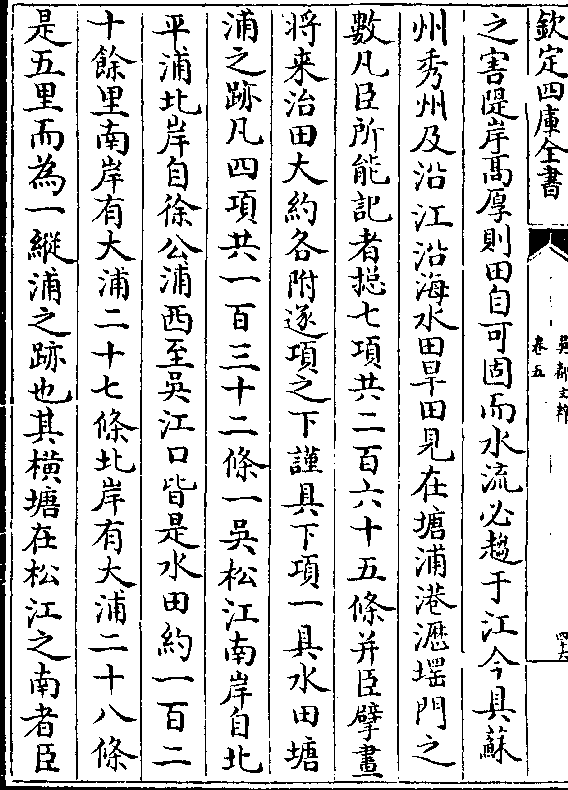 欽定四庫全書
吳都文粹
卷五
之害隄岸高厚則田自可固而水流必趨于江今具蘇
州秀州及沿江沿海水田旱田見在塘浦港瀝堽門之
數凡臣所能記者揔七項共二百六十五條并臣擘畫
將来治田大約各附逐項之下謹具下項一具水田塘
浦之跡凡四項共一百三十二條一吳松江南岸自北
平浦北岸自徐公浦西至吳江口皆是水田約一百二
十餘里南岸有大浦二十七條北岸有大浦二十八條
是五里而為一縱浦之跡也其横塘在松江之南者臣